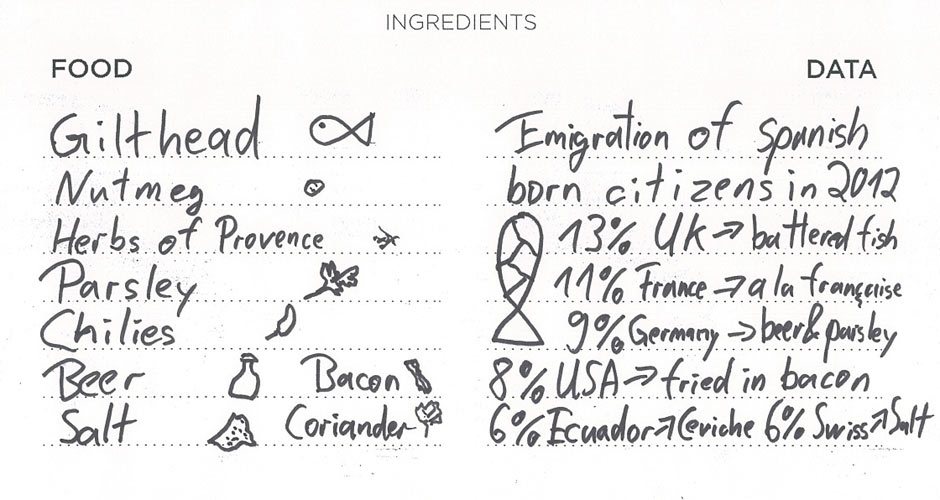 INGREDIENTS
FOOD
Gilthead
Nutmeg
Herbs of Provence
Parsley
Chilies
Beer Bacon
Salt Coriander
DATA
Emigration of spanish
born citizens in 2012
13% UK → battered fish
11% France → a la française
9% Germany → beer & parsley
8% USA → fried in bacon
6% Ecuador ↗ Ceviche 6% Swiss ↗ Salt